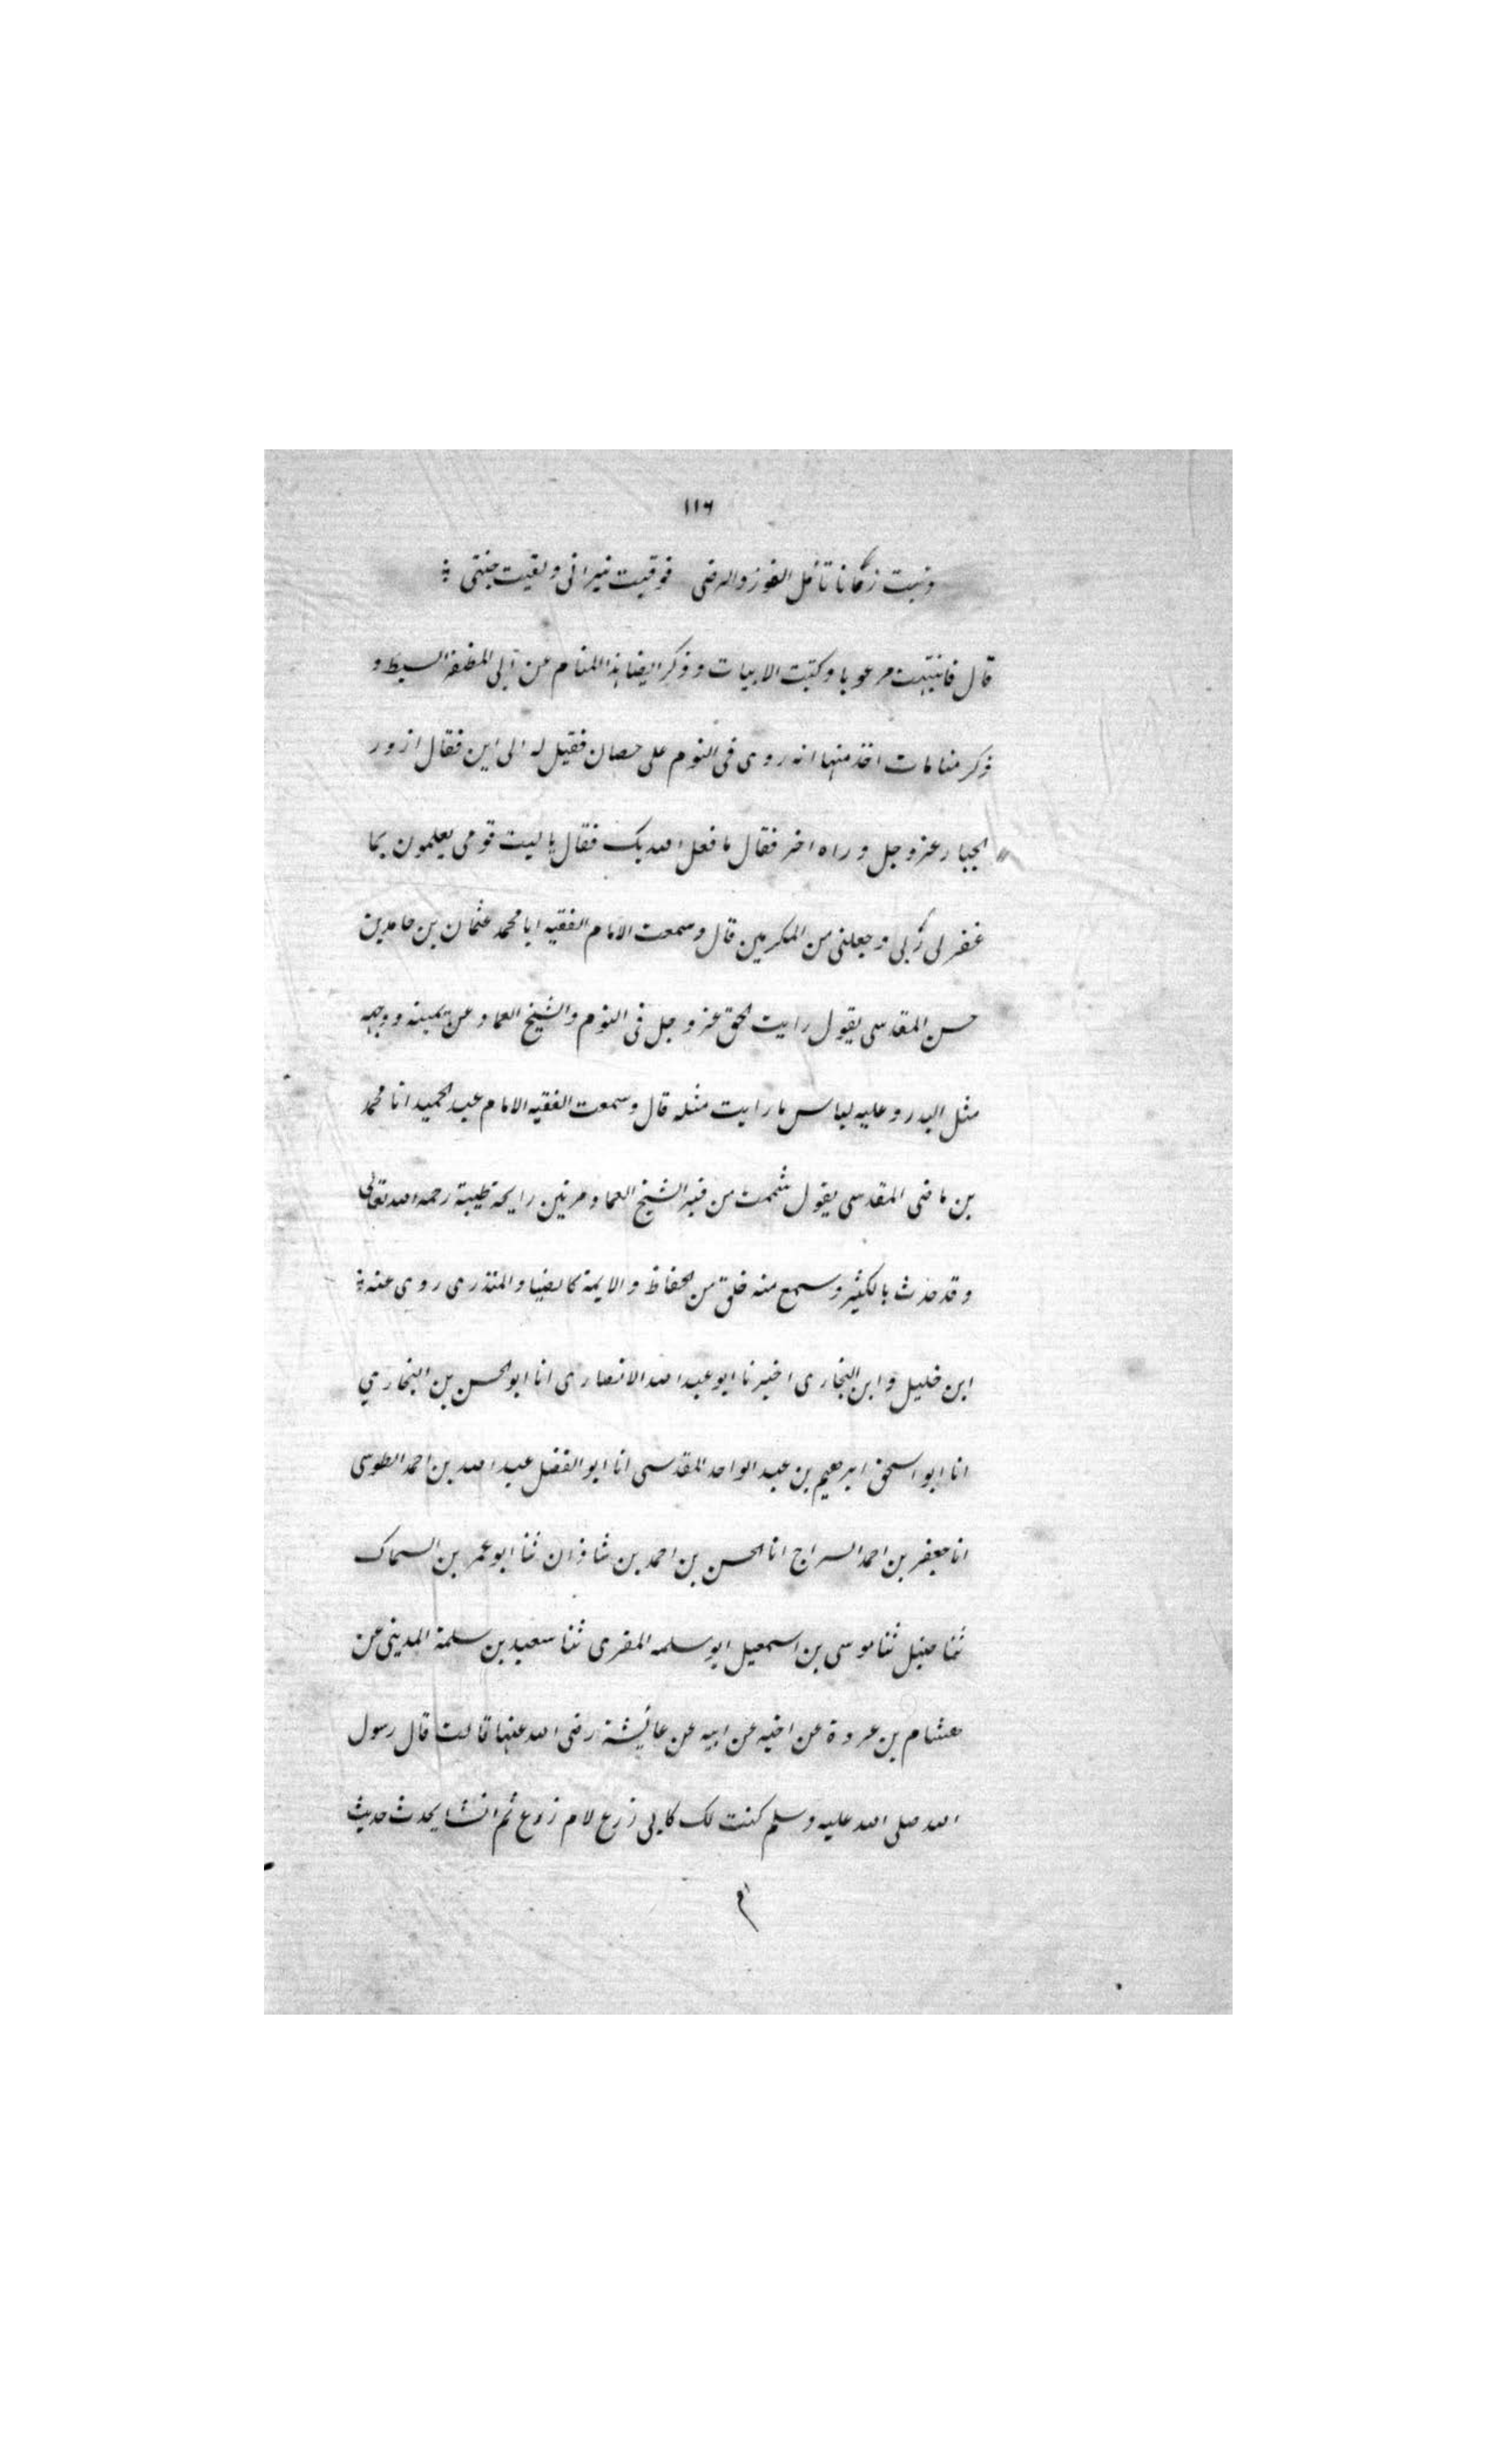 ١١٦
وبنت زمانا تأمل الفوز والرضى فوقيت نيرانى ولقيت جنتى
قال فانتبهت مرعوبا وكتبت الابيات وذكر ايضا هذا المنام عن ابى المظفر السبط و
ذكر منامات اخذ منها انه روى فى النوم على حصان فقيل له الى اين فقال ازور
الجبار عز وجل وراه اخر فقال ما فعل الله بك فقال يا ليت قومى يعلمون بما
غفر لى ربى وجعلنى من المكرمين قال وسمعت الامام الفقيه ابا محمد عثمان بن حامد بن
حسن المقدسى يقول رايت الحق عز وجل فى النوم والشيخ العماد عن يمينه ووجهه
مثل البدر وعليه لباس ما رايت مثله قال وسمعت الفقيه الامام عبد الحميد انا محمد
بن ماضى المقدسى يقول شممت من قبر الشيخ العماد مرتين رايحة طيبة رحمه الله تعالى
وقد حدث بالكثير وسمع منه خلق من الحفاظ والايمة كالضيا والمنذرى روى عنه
ابن خليل وابن البخارى اخبرنا ابو عبد الله الانصارى انا ابو الحسن بن البخارى
انا ابو اسحق ابرهيم بن عبد الواحد المقدسى انا ابو الفضل عبد الله بن احمد الطوسى
انا جعفر بن احمد السراج انا الحسن بن احمد بن شاذان ثنا ابو عمر بن السماك
ثنا حنبل ثنا موسى بن اسمعيل ابو سلمه المقرى ثنا سعيد بن سلمة المدينى عن
هشام بن عروة عن اخيه عن ابيه عن عايشة رضى الله عنها قالت قال رسول
الله صلى الله عليه وسلم كنت لك كابى زرع لام زرع ثم انشا يحدث حديث